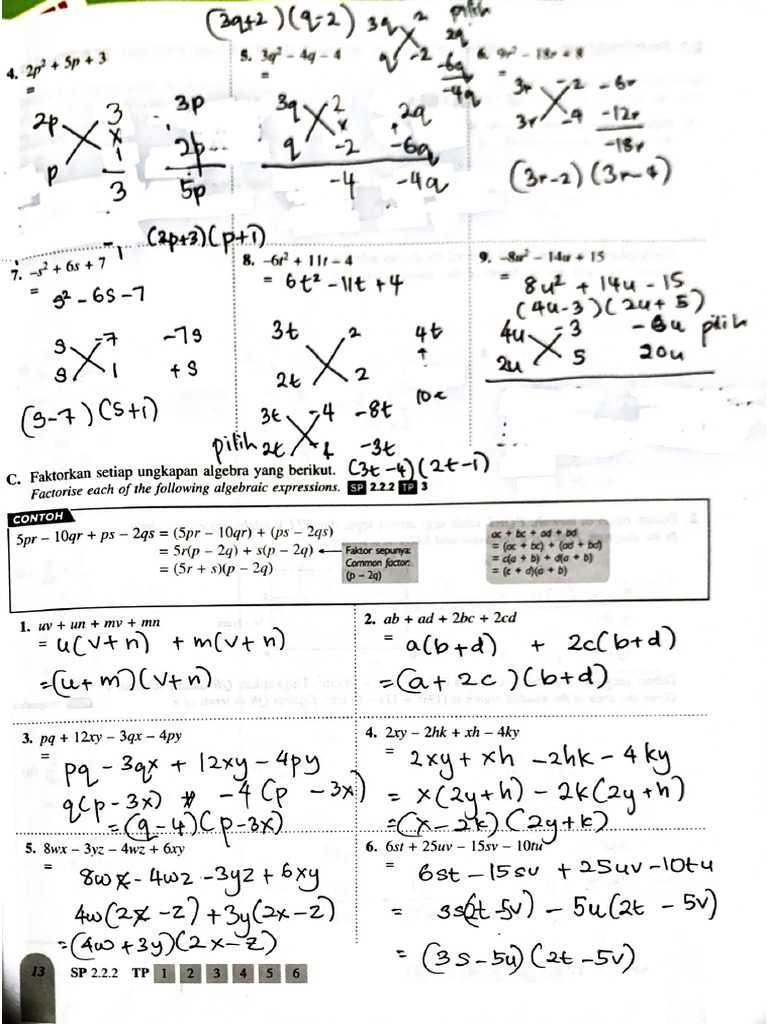 (3q+2)(q-2) 3q 2 pilih
q -2 2q
-6q
-4q
4. 2p² + 5p + 3
=
2p 3 3p
x
p 1 2p
3 5p
(2p+3)(p+1)
5. 3q² – 4q – 4
=
3q 2 2q
x +
q -2 -6q
-4 -4q
6. 9r² – 18r + 8
=
3r -2 -6r
3r -4 -12r
-18r
(3r-2)(3r-4)
7. –s² + 6s + 7
= s² - 6s - 7
s -7 -7s
s 1 +s
(s-7)(s+1)
8. –6t² + 11t – 4
= 6t² - 11t + 4
3t 2 4t
+
2t 2
3t -4 -8t
pilih 2t -3t
(3t-4)(2t-1)
9. –8u² – 14u + 15
= 8u² + 14u - 15
(4u-3)(2u+5)
4u -3 -6u pilih
2u 5 20u
C. Faktorkan setiap ungkapan algebra yang berikut.
Factorise each of the following algebraic expressions. SP 2.2.2 TP 3
CONTOH
5pr – 10qr + ps – 2qs = (5pr – 10qr) + (ps – 2qs)
= 5r(p – 2q) + s(p – 2q)
= (5r + s)(p – 2q)
Faktor sepunya:
Common factor:
(p – 2q)
ac + bc + ad + bd
= (ac + bc) + (ad + bd)
= c(a + b) + d(a + b)
= (c + d)(a + b)
1. uv + un + mv + mn
= u(v+n) + m(v+n)
= (u+m)(v+n)
2. ab + ad + 2bc + 2cd
= a(b+d) + 2c(b+d)
= (a + 2c)(b+d)
3. pq + 12xy – 3qx – 4py
=
pq - 3qx + 12xy - 4py
q(p-3x) - 4(p - 3x)
= (q-4)(p-3x)
4. 2xy – 2hk + xh – 4ky
= 2xy + xh - 2hk - 4ky
= x(2y+h) - 2k(2y+h)
= (x-2k)(2y+k)
5. 8wx – 3yz – 4wz + 6xy
=
8wx - 4wz - 3yz + 6xy
4w(2x-z) + 3y(2x-z)
= (4w+3y)(2x-z)
6. 6st + 25uv – 15sv – 10tu
= 6st - 15sv + 25uv - 10tu
= 3s(2t-5v) - 5u(2t - 5v)
= (3s-5u)(2t-5v)
13 SP 2.2.2 TP 1 2 3 4 5 6